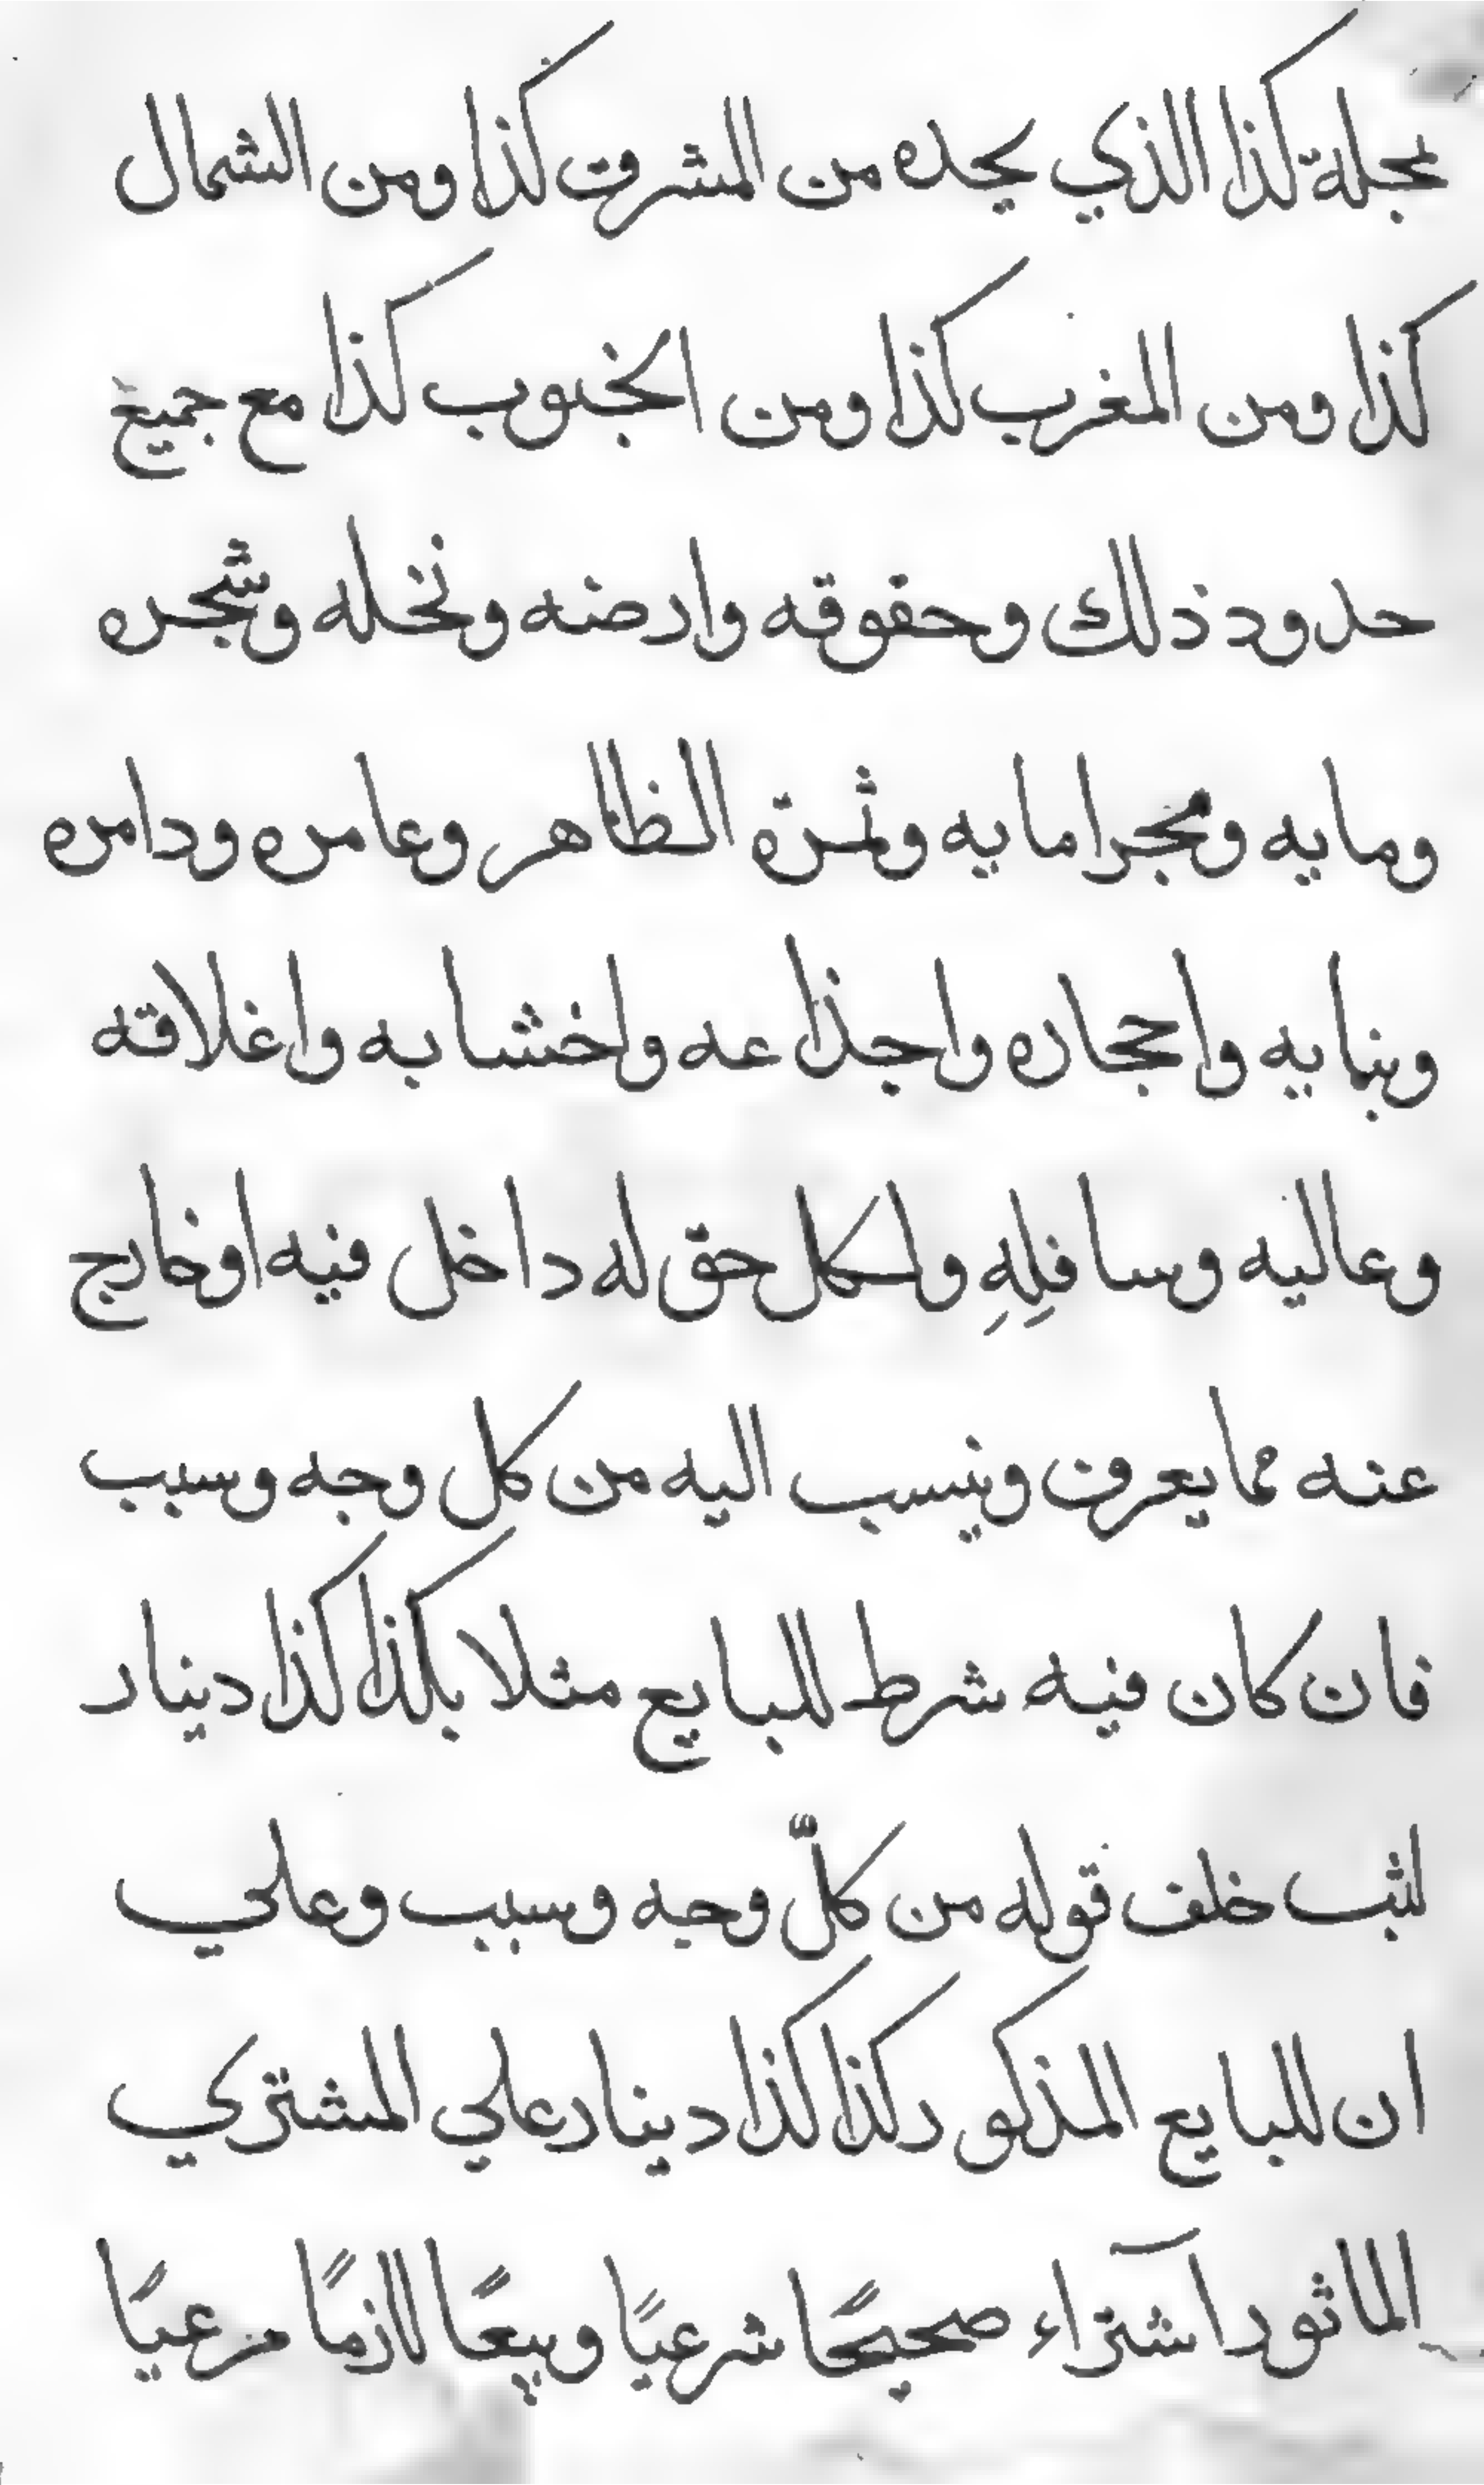 بمجلة كذا الذي يحده من المشرق كذا ومن الشمال
كذا ومن المغرب كذا ومن الجنوب كذا مع جميع
حدود ذلك وحقوقه وارضه ونخله وشجره
ومايه ومجرا مايه وثمرة الظاهر وعامره ودامره
وبنايه واحجاره واجذاعه واخشابه واغلاقه
وعاليه وسافلِهِ ولكل حق له داخل فيه او خارج
عنه مما يعرف وينسب اليه من كل وجه وسبب
فان كان فيه شرط للبايع مثلا بكذا كذا دينار
لثب خلف قوله من كلّ وجه وسبب وعلي
ان للبايع المذكور كذا كذا دينار علي المشتري
الماثور آشتراء صحيحًا شرعيًا وبيعًا لازمًا مرعيًا